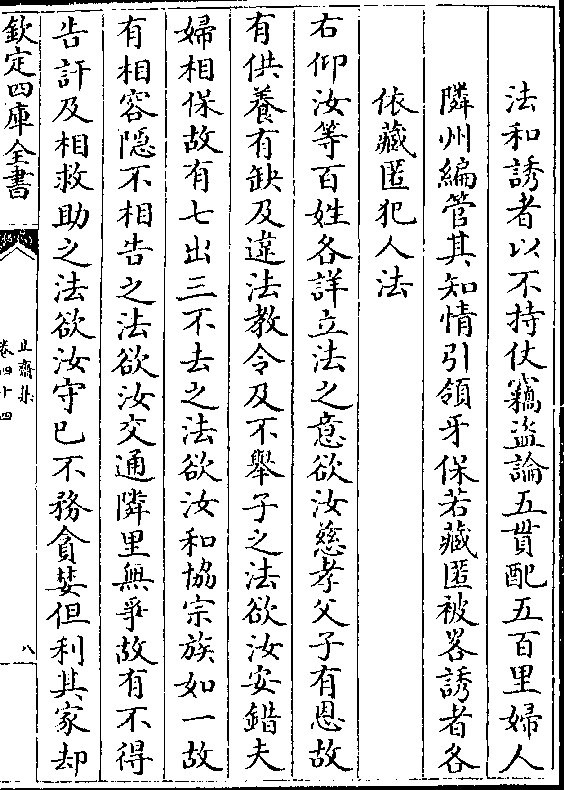 法和誘者以不持仗竊盜論五貫配五百里婦人
隣州編管其知情引領牙保若藏匿被畧誘者各
依藏匿犯人法
右仰汝等百姓各詳立法之意欲汝慈孝父子有恩故
有供養有缺及違法教令及不舉子之法欲汝安錯夫
婦相保故有七出三不去之法欲汝和協宗族如一故
有相容隠不相告之法欲汝交通隣里無爭故有不得
告訐及相救助之法欲汝守已不務貪婪但利其家却
欽定四庫全書
止齋集
卷四十四
八